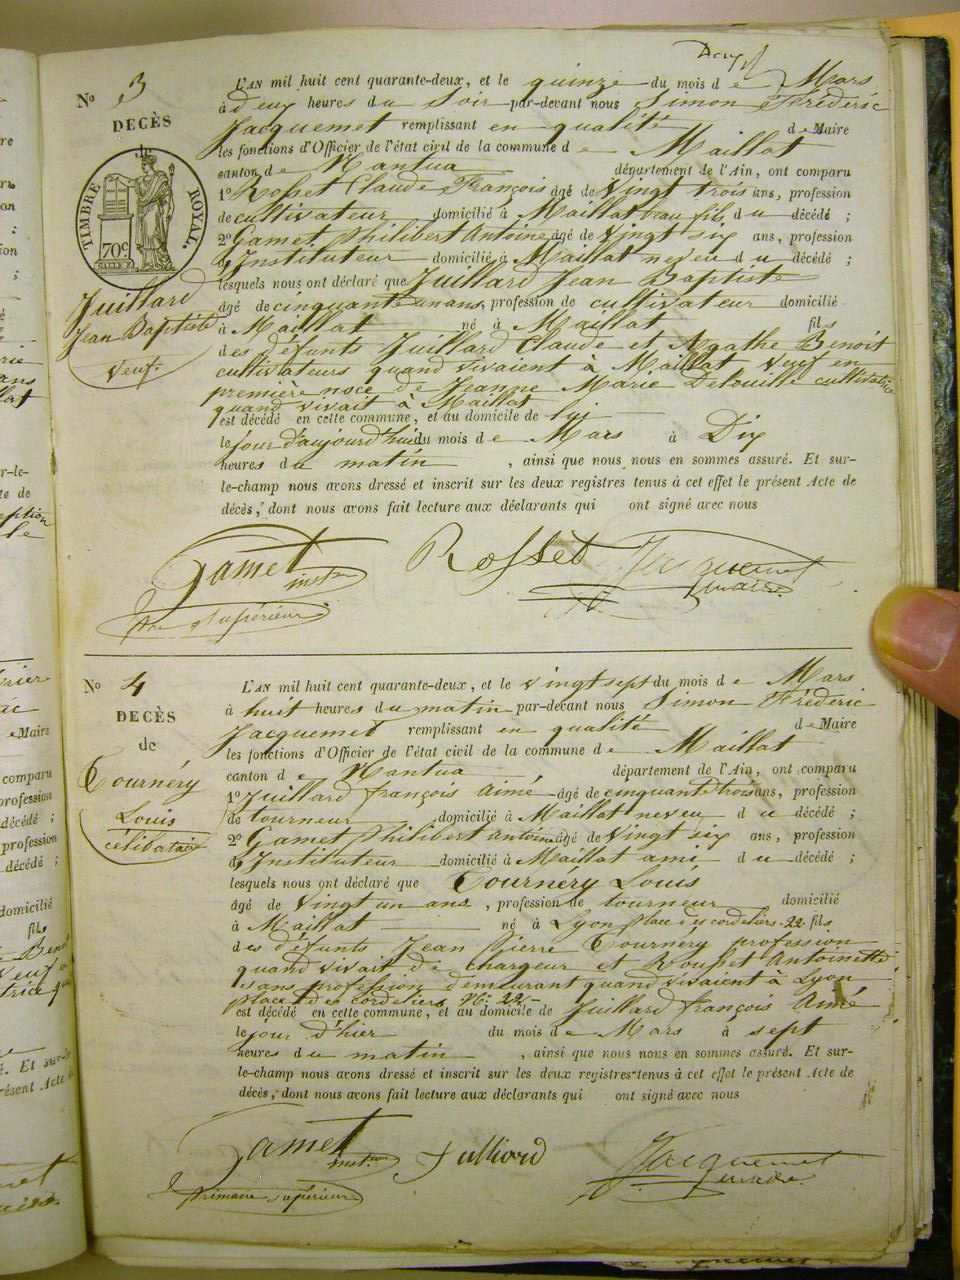 Deux
N° 3
DECÈS
de
TIMBRE ROYAL.
70c
Juillard
Jean Baptiste
Veuf.
L'AN mil huit cent quarante-deux, et le quinze du mois de Mars
à deux heures du Soir par-devant nous Simon Fréderic
Jacquemet remplissant en qualité de Maire
les fonctions d'Officier de l'état civil de la commune de Maillat
canton de Nantua département de l'Ain, ont comparu
1° Rosset Claude François âgé de vingt trois ans, profession
de cultivateur domicilié à Maillat beau fils du décédé ;
2° Gamet Philibert Antoine âgé de vingt six ans, profession
d'Instituteur domicilié à Maillat neveu du décédé ;
lesquels nous ont déclaré que Juillard Jean Baptiste
âgé de cinquante un ans, profession de cultivateur domicilié
à Maillat né à Maillat fils
des défunts Juillard Claude et Agathe Benoit
cultivateurs quand vivaient à Maillat Veuf en
première noce de Jeanne Marie Delouille cultivatrice
quand vivait à Maillat
est décédé en cette commune, et au domicile de lui
le jour d'aujourd'hui du mois de Mars à Dix
heures du matin, ainsi que nous nous en sommes assuré. Et sur-
le-champ nous avons dressé et inscrit sur les deux registres tenus à cet effet le présent Acte de
décès, dont nous avons fait lecture aux déclarants qui ont signé avec nous
Gamet inst. Rosset Jacquemet
maire
supérieur
N° 4
DECÈS
de
Tournéry
Louis
célibataire
L'AN mil huit cent quarante-deux, et le vingt sept du mois de Mars
à huit heures du matin par-devant nous Simon Fréderic
Jacquemet remplissant en qualité de Maire
les fonctions d'Officier de l'état civil de la commune de Maillat
canton de Nantua département de l'Ain, ont comparu
1° Juillard françois Aimé âgé de cinquante trois ans, profession
de tourneur domicilié à Maillat neveu du décédé ;
2° Gamet Philibert Antoine âgé de vingt six ans, profession
d'Instituteur domicilié à Maillat ami du décédé ;
lesquels nous ont déclaré que Tournéry Louis
âgé de vingt un ans, profession de tourneur domicilié
à Maillat né à Lyon place des cordeliers 22 fils
des défunts Jean Pierre Tournéry profession
quand vivait de chargeur et Rousset Antoinette
sans profession demeurant quand vivaient à Lyon
place des cordeliers N° 22
est décédé en cette commune, et au domicile de Juillard françois Aimé
le jour d'hier du mois de Mars à sept
heures du matin, ainsi que nous nous en sommes assuré. Et sur-
le-champ nous avons dressé et inscrit sur les deux registres tenus à cet effet le présent Acte de
décès, dont nous avons fait lecture aux déclarants qui ont signé avec nous
Gamet inst. Julliard Jacquemet
primaire supérieur maire